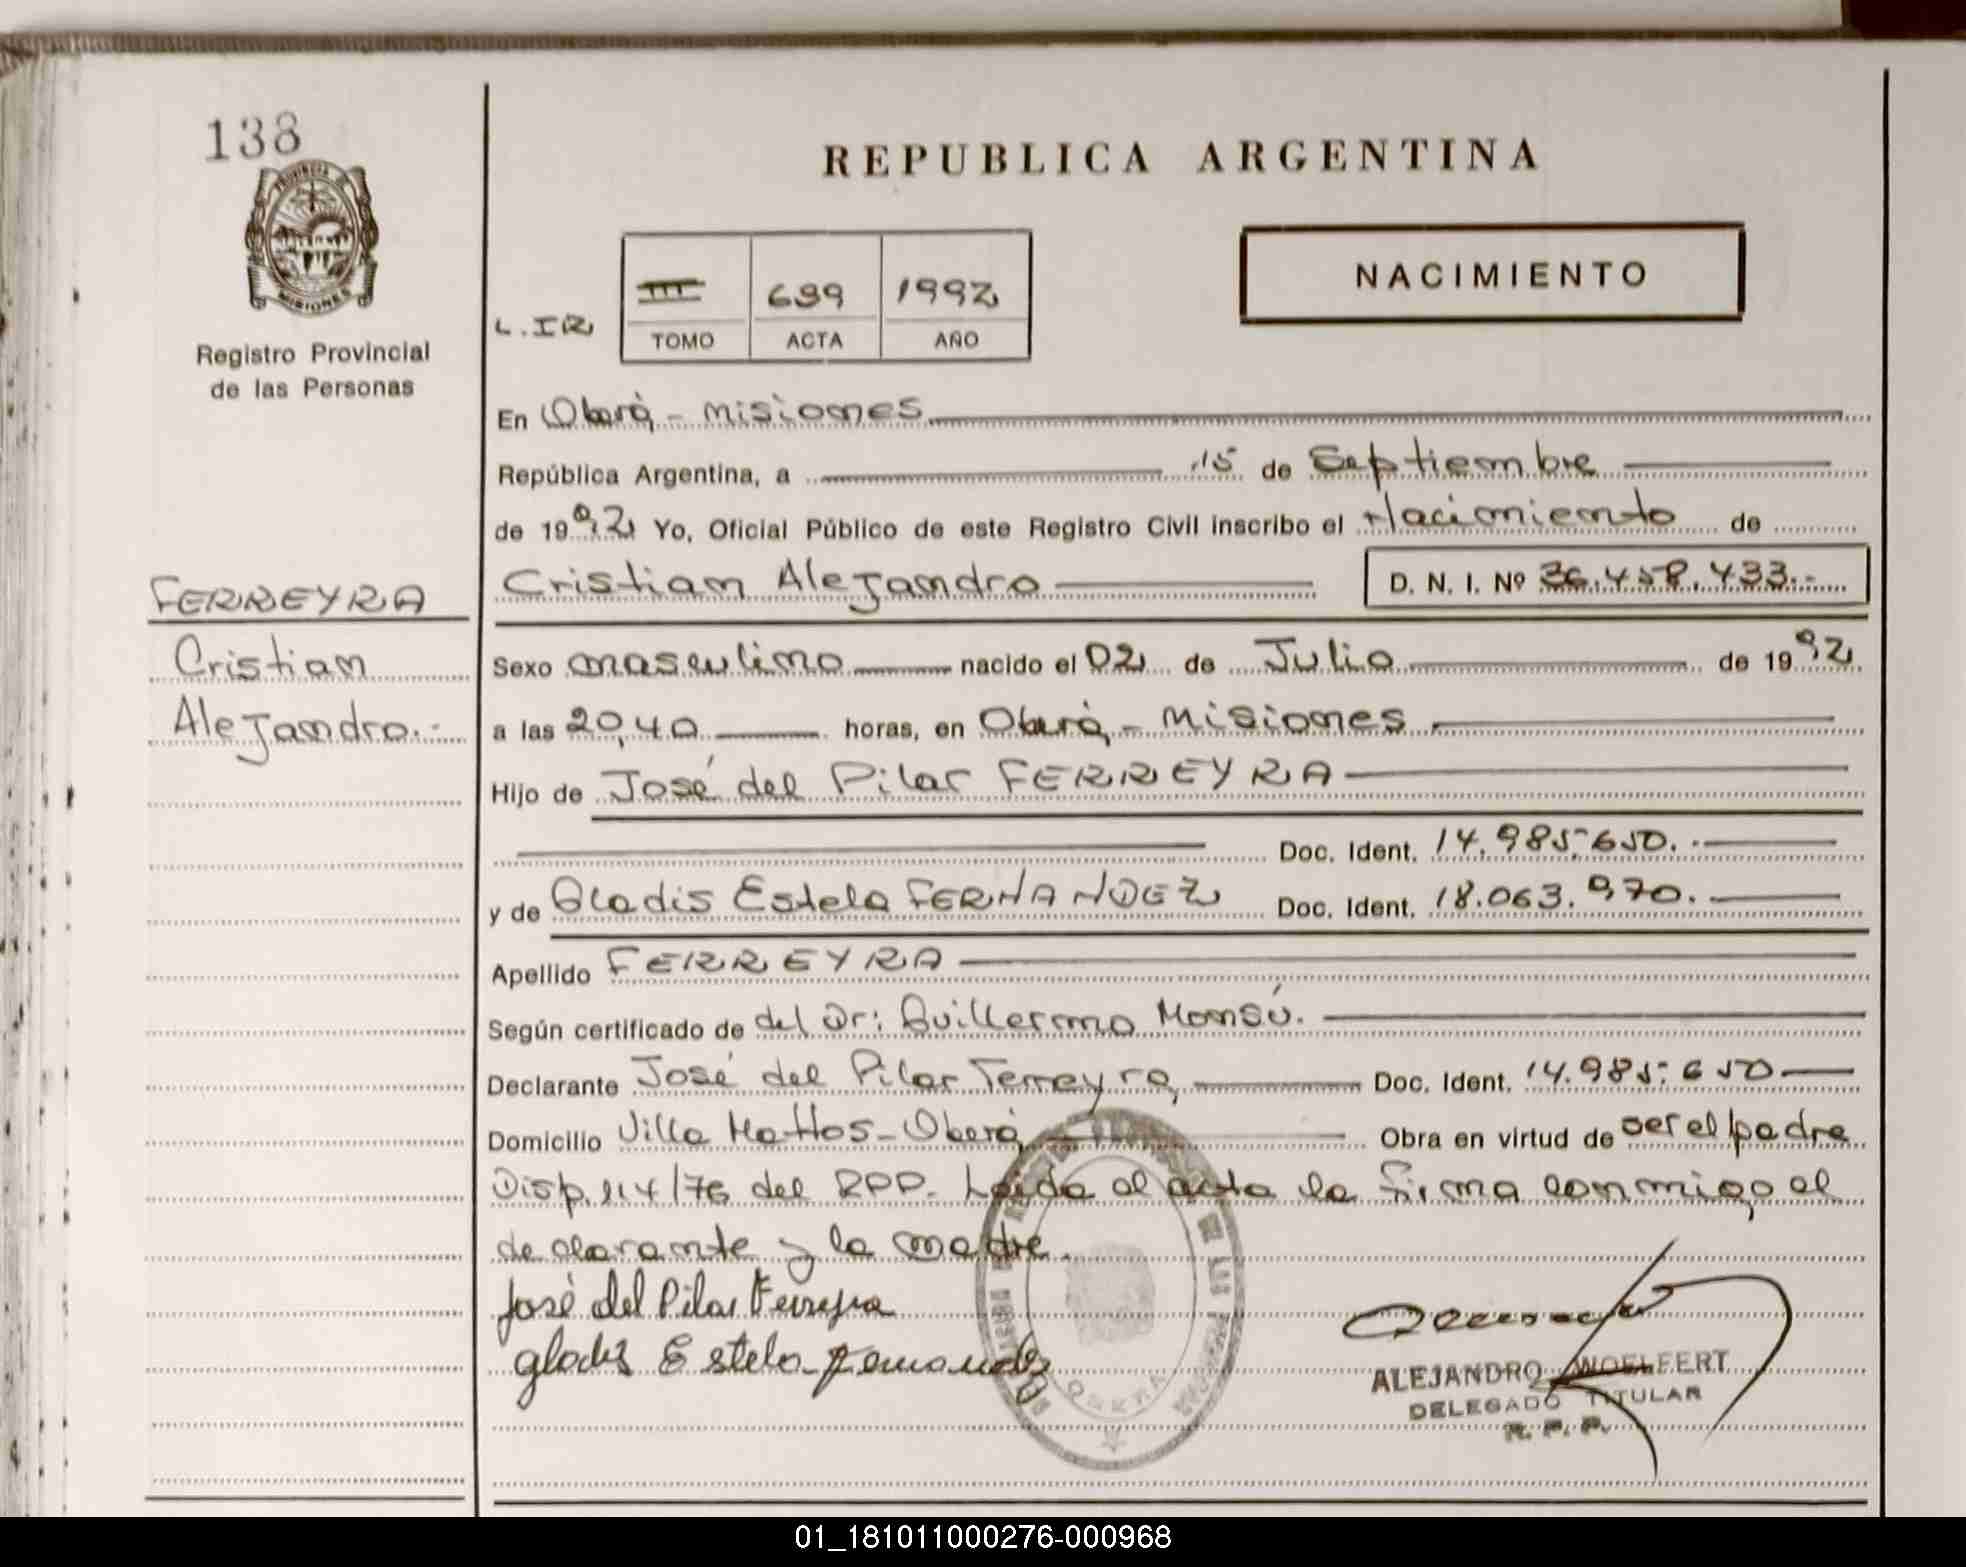 138
PROVINCIA DE
MISIONES
Registro Provincial
de las Personas
REPUBLICA ARGENTINA
L. IR
III 699 1992
TOMO ACTA AÑO
NACIMIENTO
En Oberá - Misiones
República Argentina, a 15 de Septiembre
de 1992 Yo, Oficial Público de este Registro Civil inscribo el Nacimiento de
FERREYRA
Cristian
Alejandro.-
Cristian Alejandro D. N. I. Nº 36.458.433.-
Sexo masculino nacido el 02 de Julio de 1992
a las 20,40 horas, en Oberá - Misiones
Hijo de José del Pilar FERREYRA
Doc. Ident. 14.985.650.
y de Gladis Estela FERNANDEZ Doc. Ident. 18.063.970.
Apellido FERREYRA
Según certificado de del Dr: Guillermo Monsú.
Declarante José del Pilar Ferreyra Doc. Ident. 14.985.650
Domicilio Villa Mattos - Oberá Obra en virtud de ser el padre
Disp. 114/76 del RPP. Leída el acta la firma conmigo el
declarante y la madre.
José del Pilar Ferreyra
Gladis Estela Fernandez
OBERA
ALEJANDRO WOELFERT
DELEGADO TITULAR
R. P. P.
01_181011000276-000968